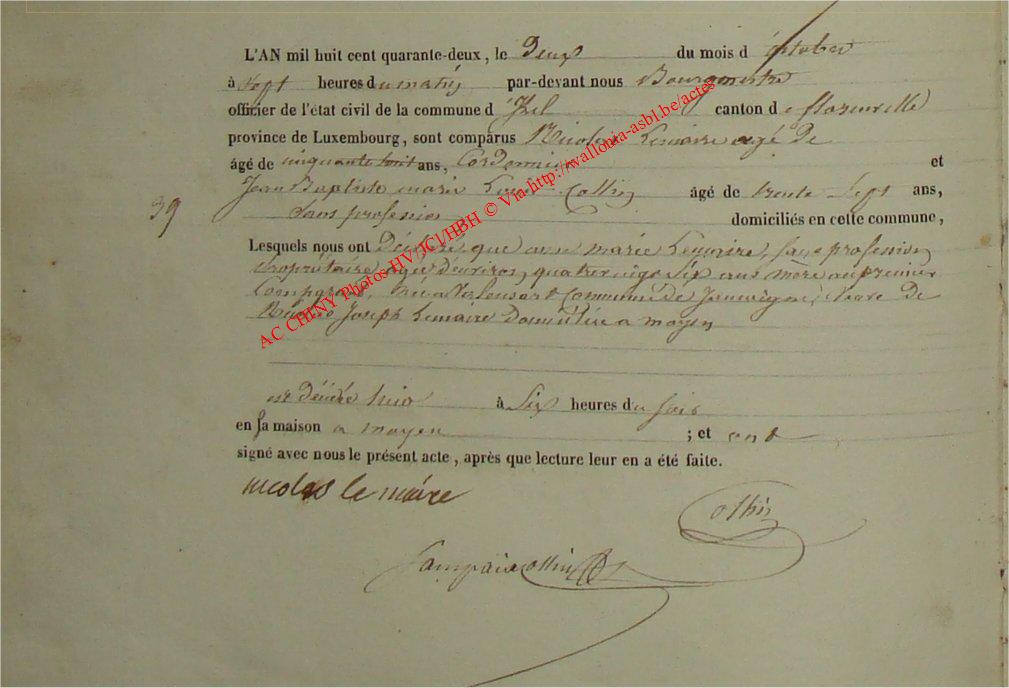 L'AN mil huit cent quarante-deux, le deux du mois d'octobre
à sept heures du matin par-devant nous Bourgmestre
officier de l'état civil de la commune d'Izel canton de florenville
province de Luxembourg, sont comparus Nicolas Lemaire agé de
âgé de cinquante huit ans, Cordonnier et
Jean Baptiste marie Louis Collin âgé de trente sept ans,
39
Sans profession domiciliés en cette commune,
Lesquels nous ont déclaré que anne marie Lemaire, sans profession
propriétaire agée d'environ, quatre vingt six ans mère au premier
Comparant, née a commune de Jamoigne, de
Joseph Lemaire domiciliée a moyen
est décédé hier à Six heures du soir
en sa maison a moyen ; et ont
signé avec nous le présent acte, après que lecture leur en a été faite.
nicolas le maire
Collin
Collin
AC CHINY Photos HV/JCl/HBH © Via http://wallonia-asbl.be/actes